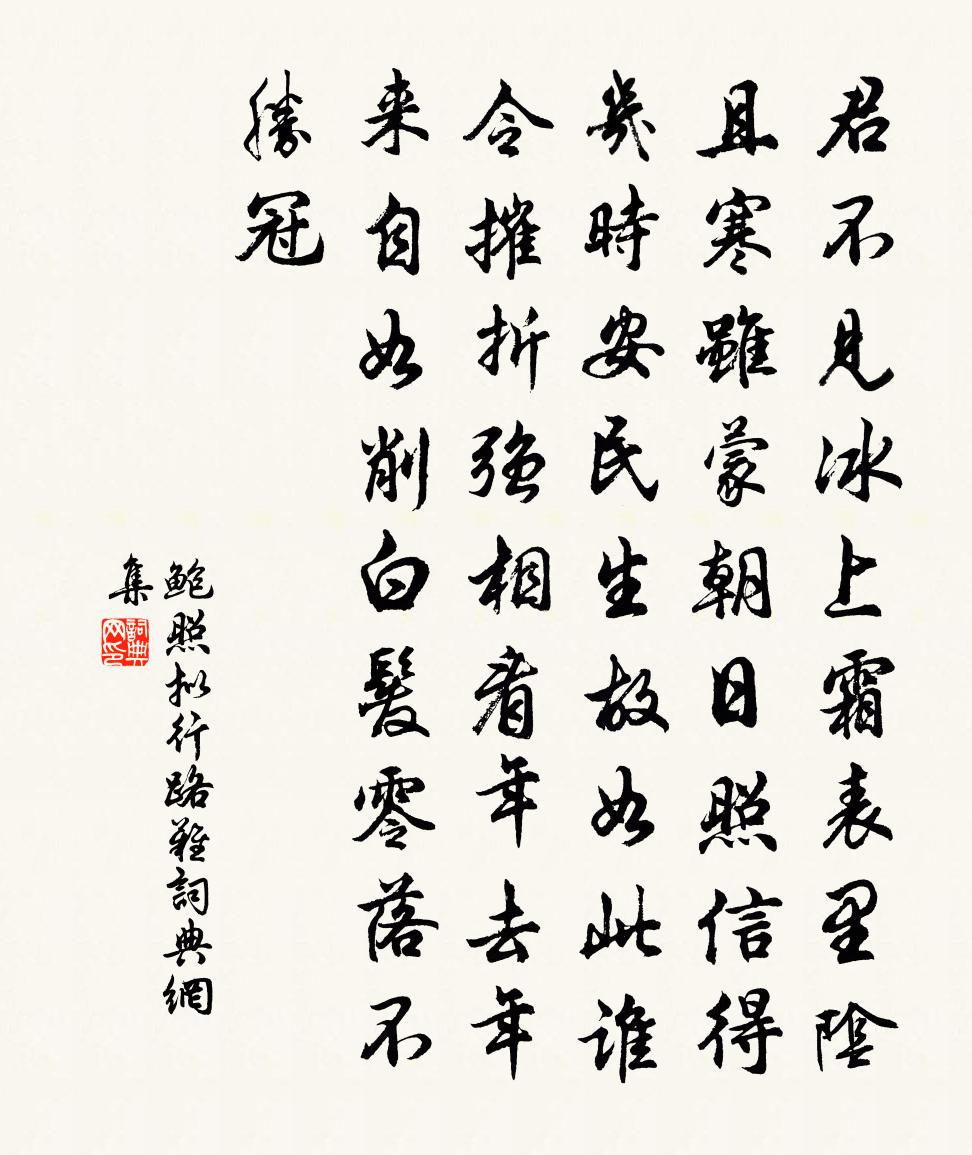 君不見冰上霜表里陰
且寒雖蒙朝日照信得
幾時安民生故如此誰
令摧折強相看年去年
来自如削白髮零落不
勝冠
鲍照拟行路難詞典網
集
詞典网印